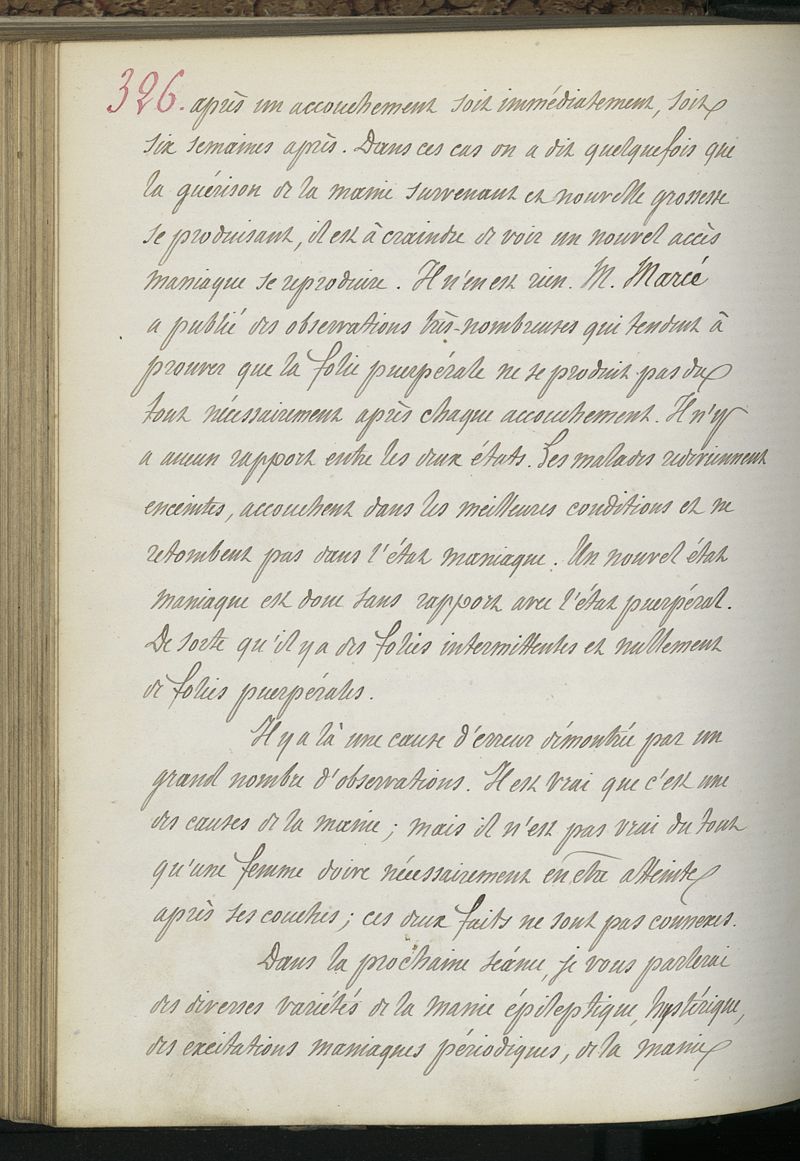 326. après un accouchement soit immédiatement, soit
six semaines après. Dans ces cas on a dit quelquefois que
la guérison de la manie survenant et nouvelle grossesse
se produisant, il est à craindre de voir un nouvel accès
maniaque se reproduire. Il n'en est rien. M. Marcé
a publié des observations très-nombreuses qui tendent à
prouver que la folie puerpérale ne se produit pas du
tout nécessairement après chaque accouchement. Il n'y
a aucun rapport entre les deux états. Les malades redeviennent
enceintes, accouchent dans les meilleures conditions et ne
retombent pas dans l'état maniaque. Un nouvel état
maniaque est donc sans rapport avec l'état puerpéral.
De sorte qu'il y a des folies intermittentes et nullement
de folies puerpérales.
Il y a là une cause d'erreur démontrée par un
grand nombre d'observations. Il est vrai que c'est une
des causes de la manie ; mais il n'est pas vrai du tout
qu'une femme doive nécessairement en être atteinte
après ses couches ; ces deux faits ne sont pas connexes.
Dans la prochaine séance, je vous parlerai
des diverses variétés de la manie épileptique, hystérique,
des excitations maniaques périodiques, de la manie